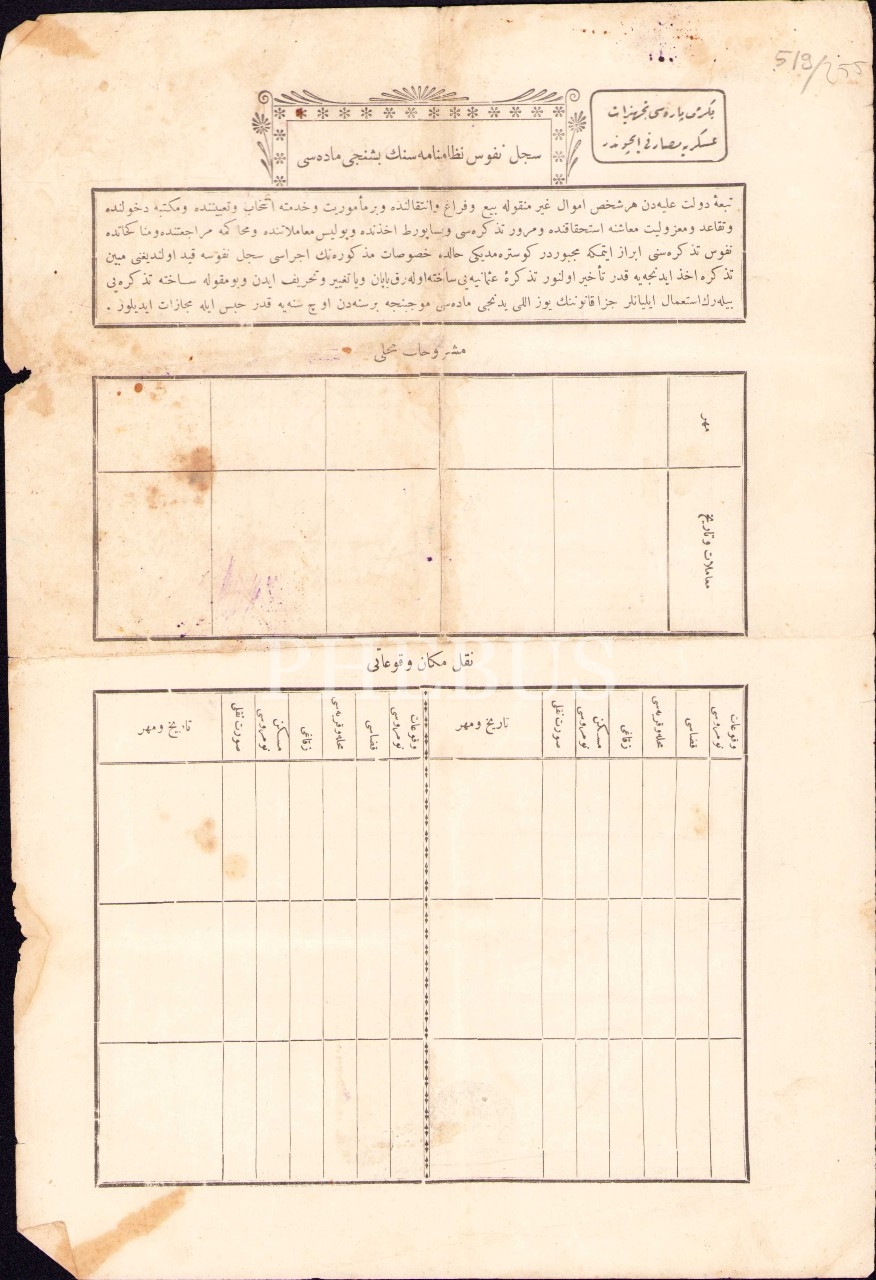 518/255
يكرمى پاره‌سى تجهيزات
عسكريه مصارفى ايچوندر
سجل نفوس نظامنامه سنك بشنجى ماده‌سى
تبعهٔ دولت عليه‌دن هر شخص اموال غير منقوله بيع و فراغ وانتقالنده و بر مأموريت و خدمته انتخاب وتعييننده ومكتبه دخولنده
وتقاعد ومعزوليت معاشنه استحقاقنده ومرور تذكره‌سى وپساپورط اخذنده وپوليس معاملاتنده ومحاكمه مراجعتنده ومناكحاتده
نفوس تذكره‌سنى ابراز ايتمكه مجبوردر كوستره‌مديكى حالده خصوصات مذكوره‌نك اجراسى سجل نفوسه قيد اولنديغنى مبين
تذكره اخذ ايدنجه‌يه قدر تأخير اولنور تذكرهٔ عثمانيه‌يى ساخته اوله‌رق ياپان ويا تغيير وتحريف ايدن وبومقوله ساخته تذكره‌يى
بيله‌رك استعمال ايليانلر جزا قانوننك يوز اللى يدنجى ماده‌سى موجبنجه برسنه‌دن اوچ سنه‌يه قدر حبس ايله مجازات ايديلور .
مشروحات محلى
مهر
معاملات وتاريخ
نقل مكان وقوعاتى
وقوعات نومروسى
قضاسى
محله وقريه‌سى
زقاغى
مسكن نومروسى
صورت نقلى
تاريخ ومهر
وقوعات نومروسى
قضاسى
محله وقريه‌سى
زقاغى
مسكن نومروسى
صورت نقلى
تاريخ ومهر
PHEBUS